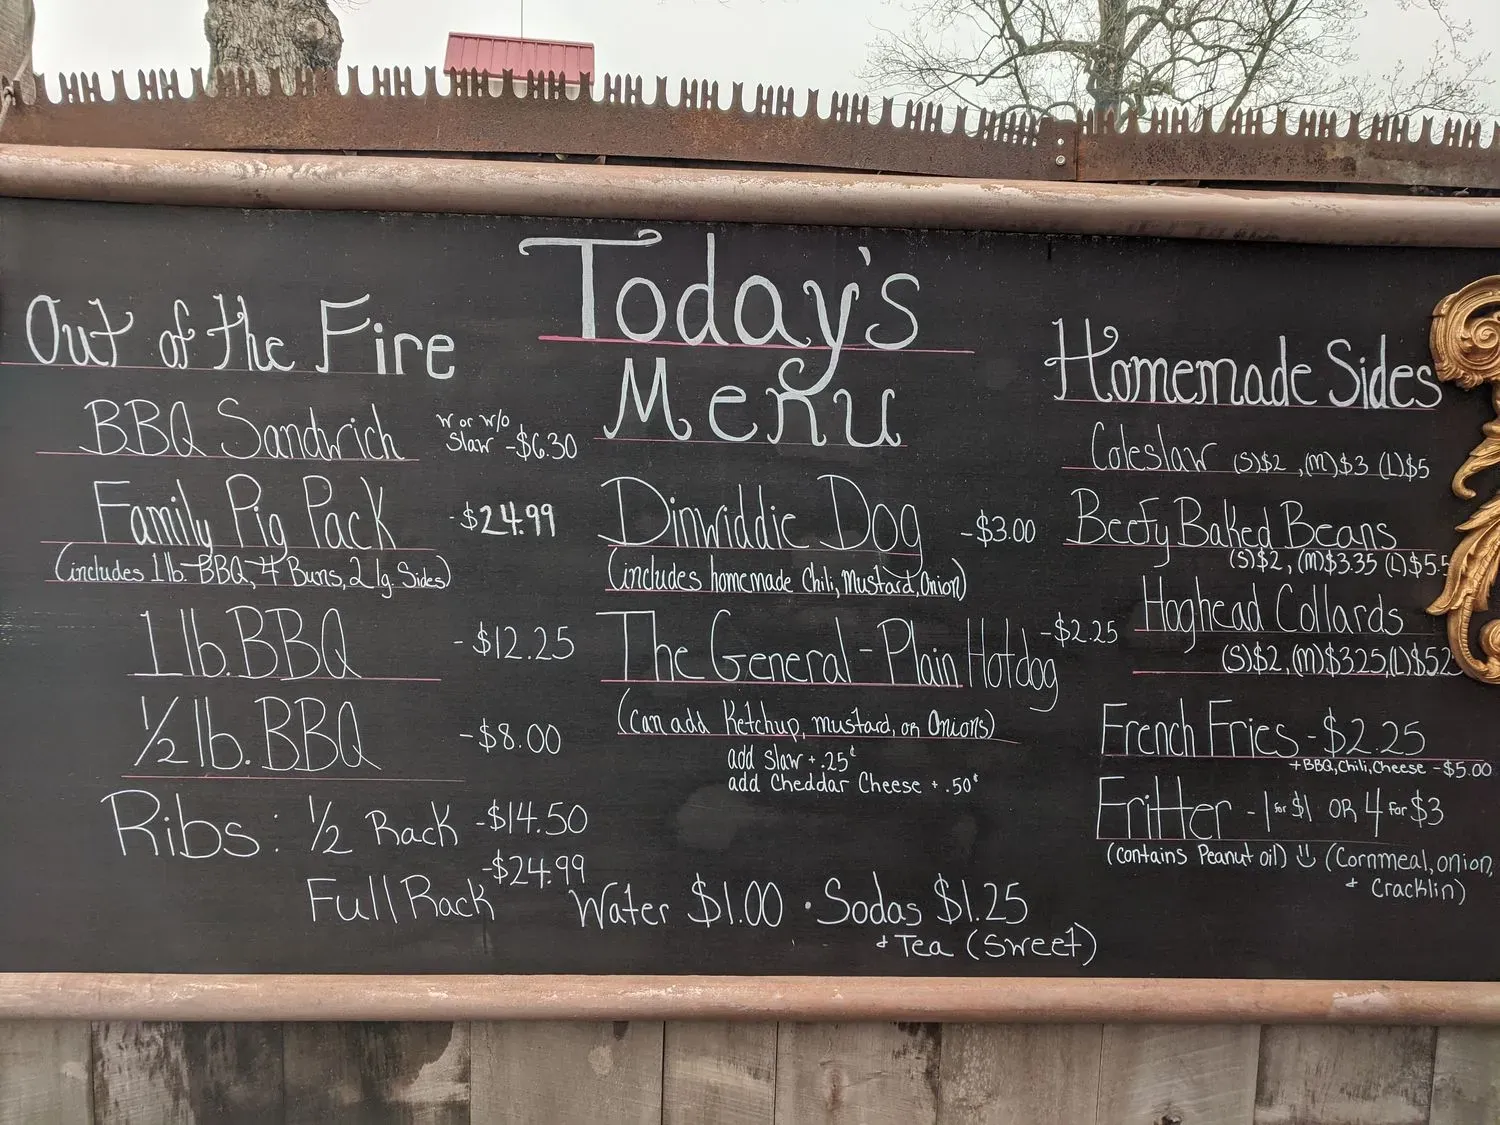 Today's
Menu
Out of the Fire
BBQ Sandwich w or w/o
Slaw - $6.30
Family Pig Pack - $24.99
(includes 1 lb. BBQ, 4 Buns, 2 lg. Sides)
1 lb. BBQ - $12.25
1/2 lb. BBQ - $8.00
Ribs: 1/2 Rack - $14.50
Full Rack - $24.99
Dinwiddie Dog - $3.00
(includes homemade Chili, Mustard, Onion)
The General - Plain Hotdog - $2.25
(can add Ketchup, mustard, or Onions)
add Slaw + .25¢
add Cheddar Cheese + .50¢
Water $1.00 · Sodas $1.25
+ Tea (Sweet)
Homemade Sides
Coleslaw (S)$2, (M)$3 (L)$5
Beefy Baked Beans
(S)$2, (M)$3.35 (L)$5.5
Hoghead Collards
(S)$2, (M)$325, (L)$52
French Fries - $2.25
+ BBQ, Chili, Cheese - $5.00
Fritter - 1 for $1 OR 4 for $3
(contains Peanut oil) (Cornmeal, onion,
+ Cracklin)